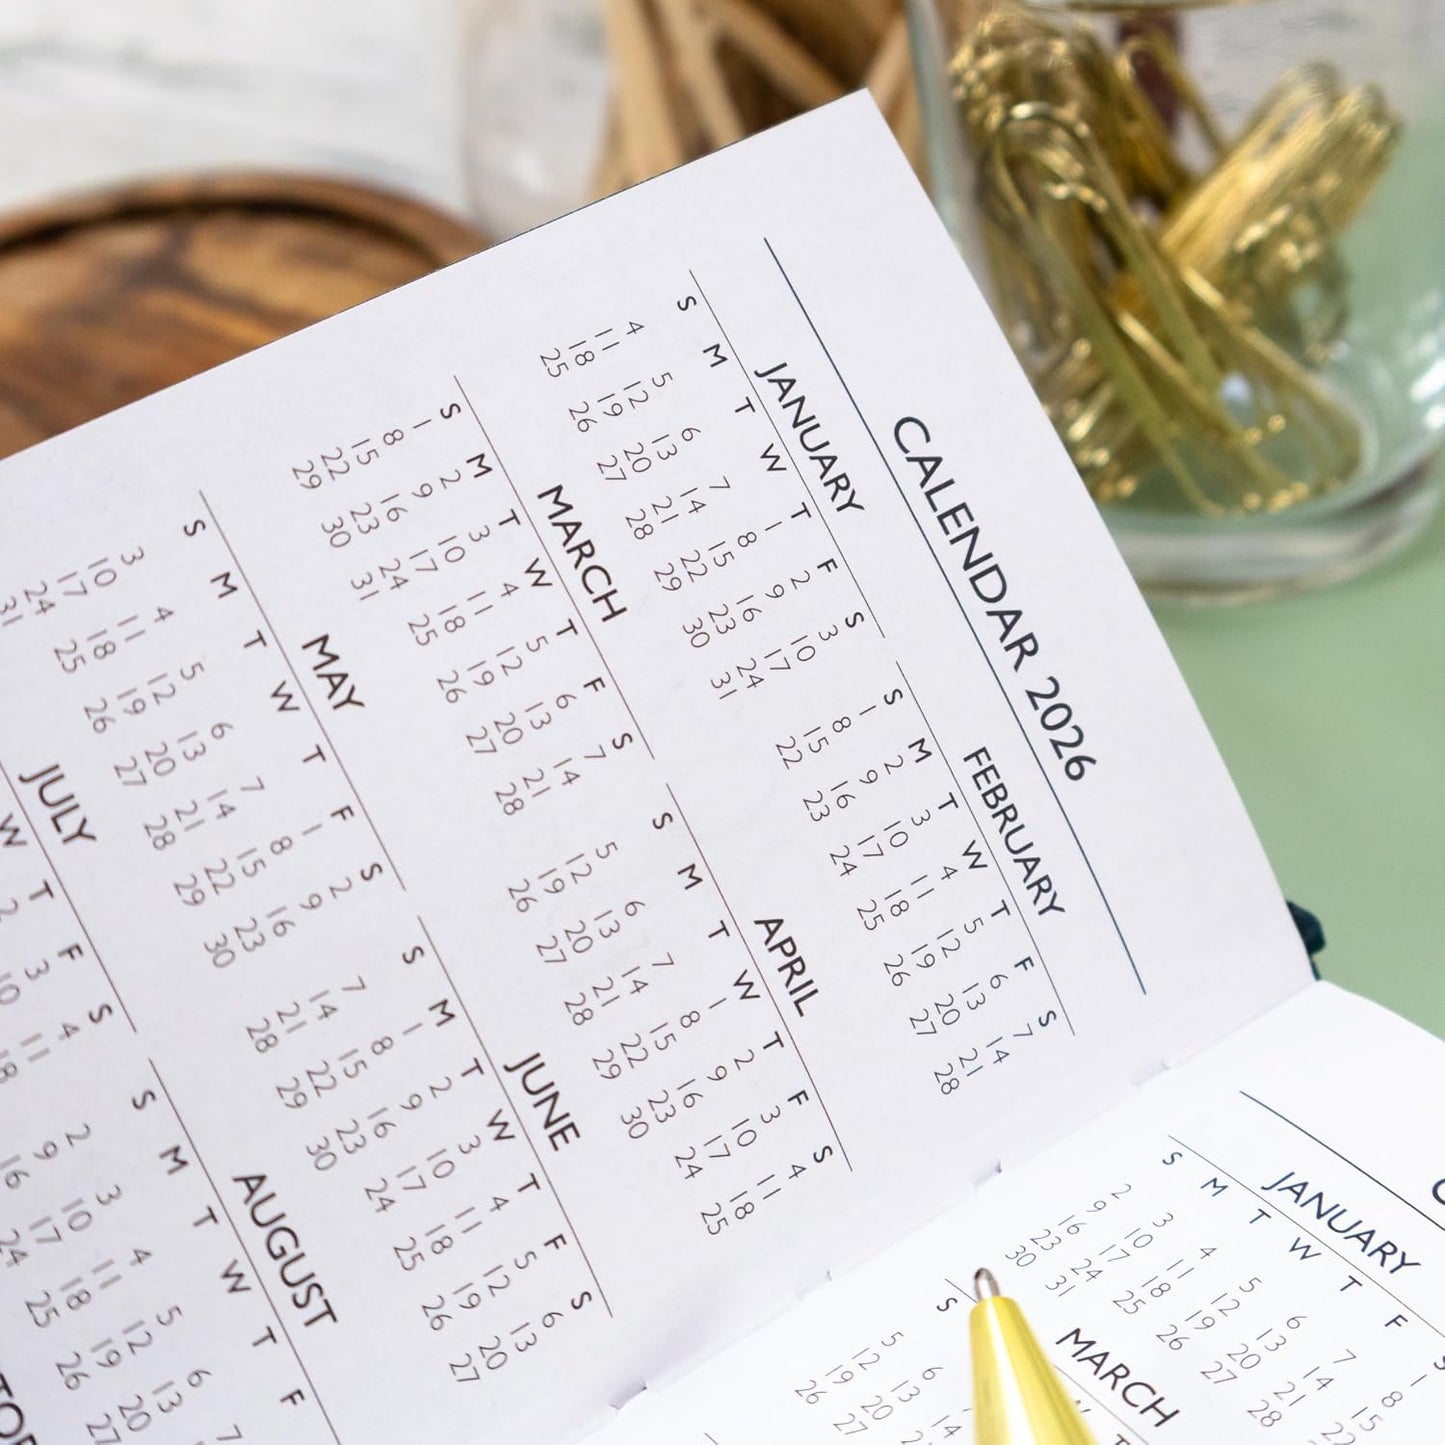 CALENDAR 2026
JANUARY
S M T W T F S
1 2 3
4 5 6 7 8 9 10
11 12 13 14 15 16 17
18 19 20 21 22 23 24
25 26 27 28 29 30 31
FEBRUARY
S M T W T F S
1 2 3 4 5 6 7
8 9 10 11 12 13 14
15 16 17 18 19 20 21
22 23 24 25 26 27 28
MARCH
S M T W T F S
1 2 3 4 5 6 7
8 9 10 11 12 13 14
15 16 17 18 19 20 21
22 23 24 25 26 27 28
29 30 31
APRIL
S M T W T F S
1 2 3 4
5 6 7 8 9 10 11
12 13 14 15 16 17 18
19 20 21 22 23 24 25
26 27 28 29 30
MAY
S M T W T F S
1 2
3 4 5 6 7 8 9
10 11 12 13 14 15 16
17 18 19 20 21 22 23
24 25 26 27 28 29 30
31
JUNE
S M T W T F S
1 2 3 4 5 6
7 8 9 10 11 12 13
14 15 16 17 18 19 20
21 22 23 24 25 26 27
28 29 30
JULY
W T F S
2 3 4
10 11
18
AUGUST
S M T W T F
2 3 4 5 6 7
9 10 11 12 13
16 17 18 19 20
24 25 26 27
JANUARY
S M T W T F S
1
2 3 4 5 6 7 8
9 10 11 12 13 14 15
16 17 18 19 20 21 22
23 24 25 26 27 28
30 31
MARCH
S
5 6
12 13 14
19 20 21
26 27